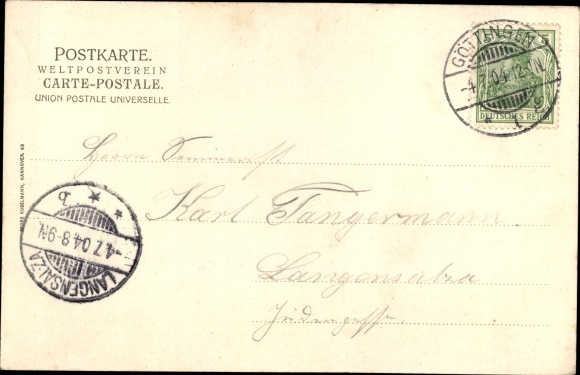 POSTKARTE.
WELTPOSTVEREIN
CARTE-POSTALE.
UNION POSTALE UNIVERSELLE.
GÖTTINGEN
-4.7.04.12-1N.
DEUTSCHES REICH
5
Herrn
Karl Tangermann
Langensalza
LANGENSALZA
-4.7.04.8-9N.
b
HANNOVER. 42